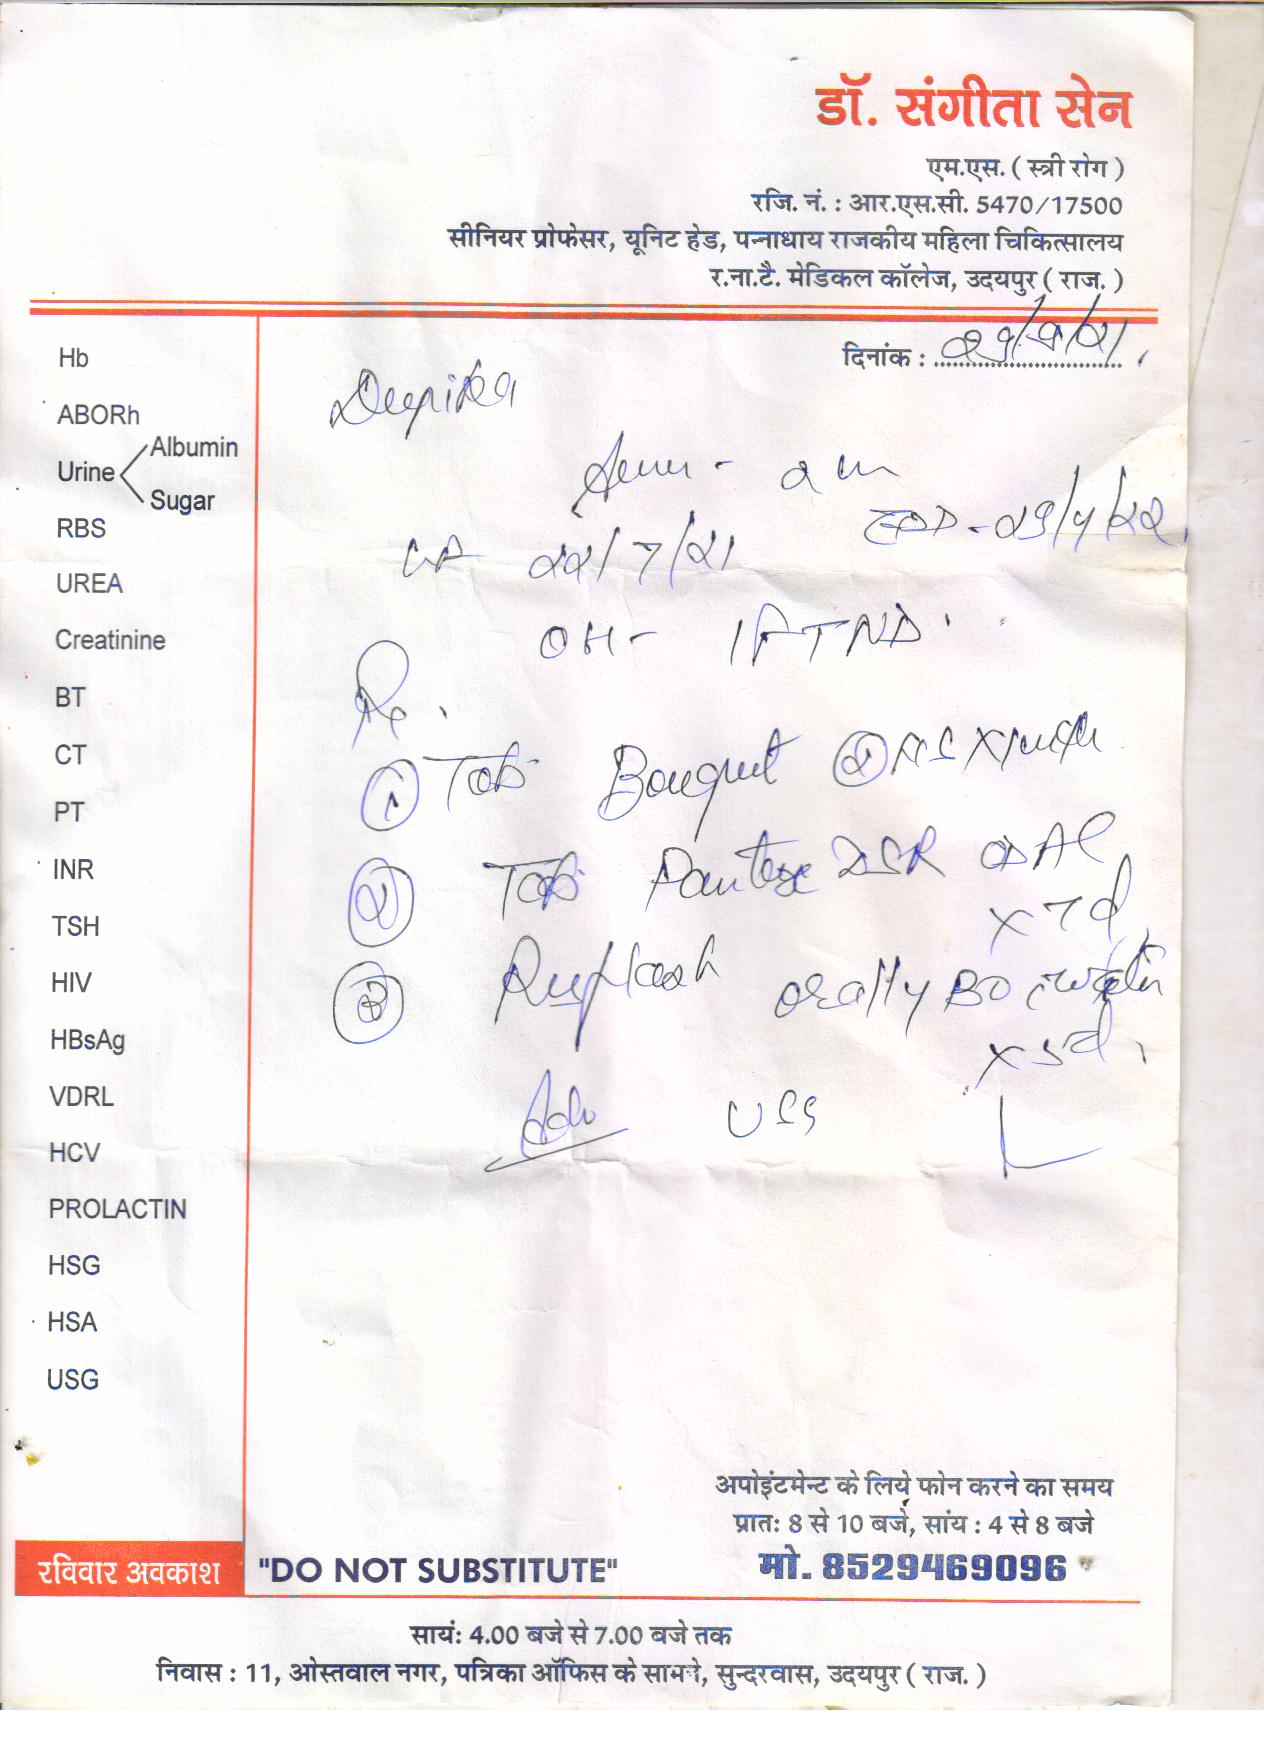 डॉ. संगीता सेन
एम.एस. ( स्त्री रोग )
रजि. नं. : आर.एस.सी. 5470/17500
सीनियर प्रोफेसर, यूनिट हेड, पन्नाधाय राजकीय महिला चिकित्सालय
र.ना.टै. मेडिकल कॉलेज, उदयपुर ( राज. )
दिनांक :
Hb
ABORh
Urine Albumin
Sugar
RBS
UREA
Creatinine
BT
CT
PT
INR
TSH
HIV
HBsAg
VDRL
HCV
PROLACTIN
HSG
HSA
USG
Deepika
2 m
22/7/21 EDD - 29/4/22
OH - 1 FTND
Rx.
1 Tab Bouquet
2 Tab DSR OD AC
x 7 d
3 orally BD water
x 5 d
Adv USG
अपोइंटमेन्ट के लिये फोन करने का समय
प्रातः 8 से 10 बजे, सांय : 4 से 8 बजे
मो. 8529469096
रविवार अवकाश "DO NOT SUBSTITUTE"
सायं: 4.00 बजे से 7.00 बजे तक
निवास : 11, ओस्तवाल नगर, पत्रिका ऑफिस के सामने, सुन्दरवास, उदयपुर ( राज. )